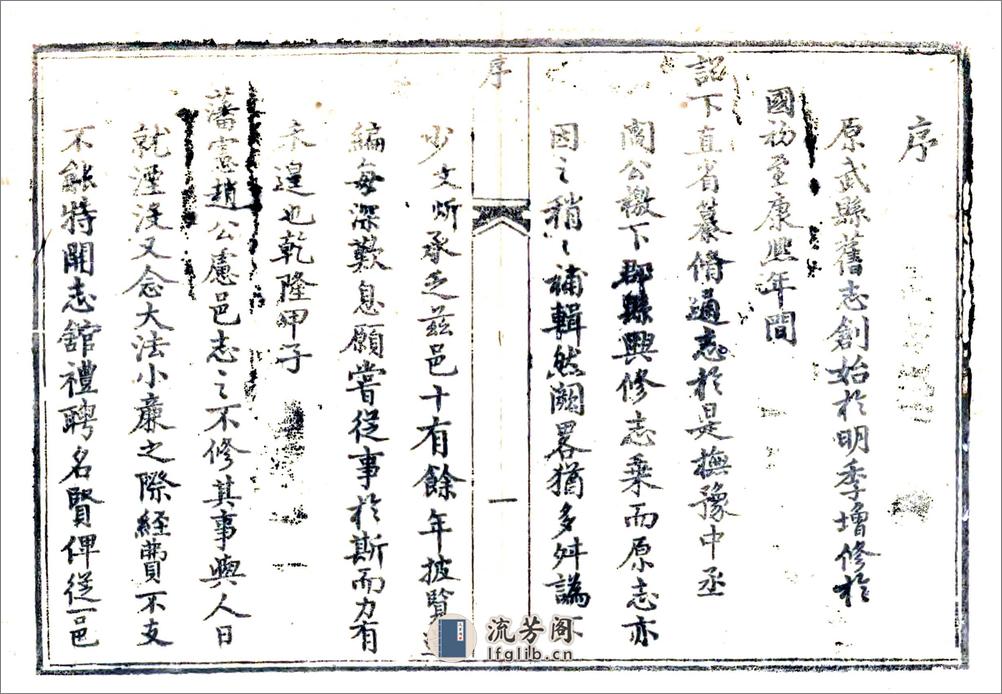 序
原武縣舊志創始於明季增修於
國初至康熙年間
詔下直省纂脩通志於是撫豫中丞
閻公檄下郡縣興修志乘而原志亦
因之稍之補輯然闕畧猶多舛譌不
序
一
少文炘承乏茲邑十有餘年披覽
編每深歎息願嘗從事於斯而力有
未遑也乾隆甲子
藩憲趙公慮邑志之不修其事與人日
就湮沒又念大法小廉之際經費不支
不能特開志舘禮聘名賢俾從一邑
流芳阁
lfglib.cn